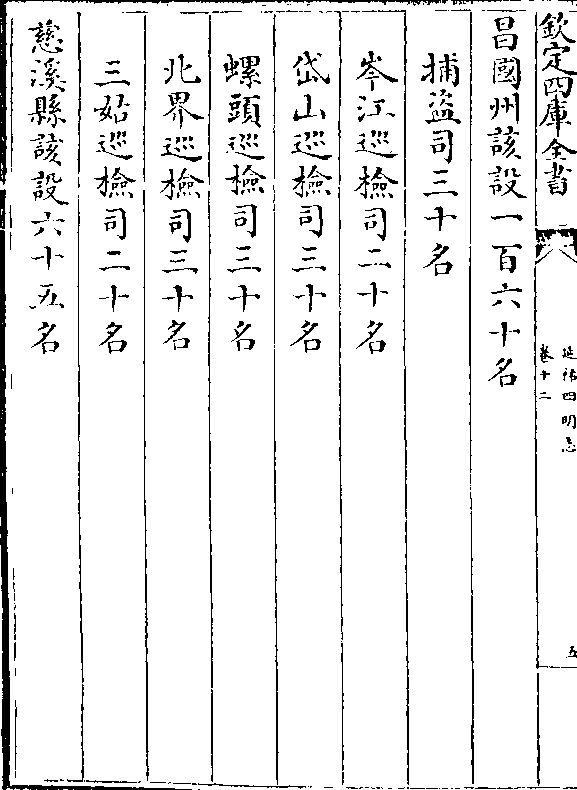 欽定四庫全書
延祐四明志
卷十二
五
昌國州該設一百六十名
捕盜司三十名
岑江巡檢司二十名
岱山巡檢司三十名
螺頭巡檢司三十名
北界巡檢司三十名
三姑巡檢司二十名
慈溪縣該設六十五名